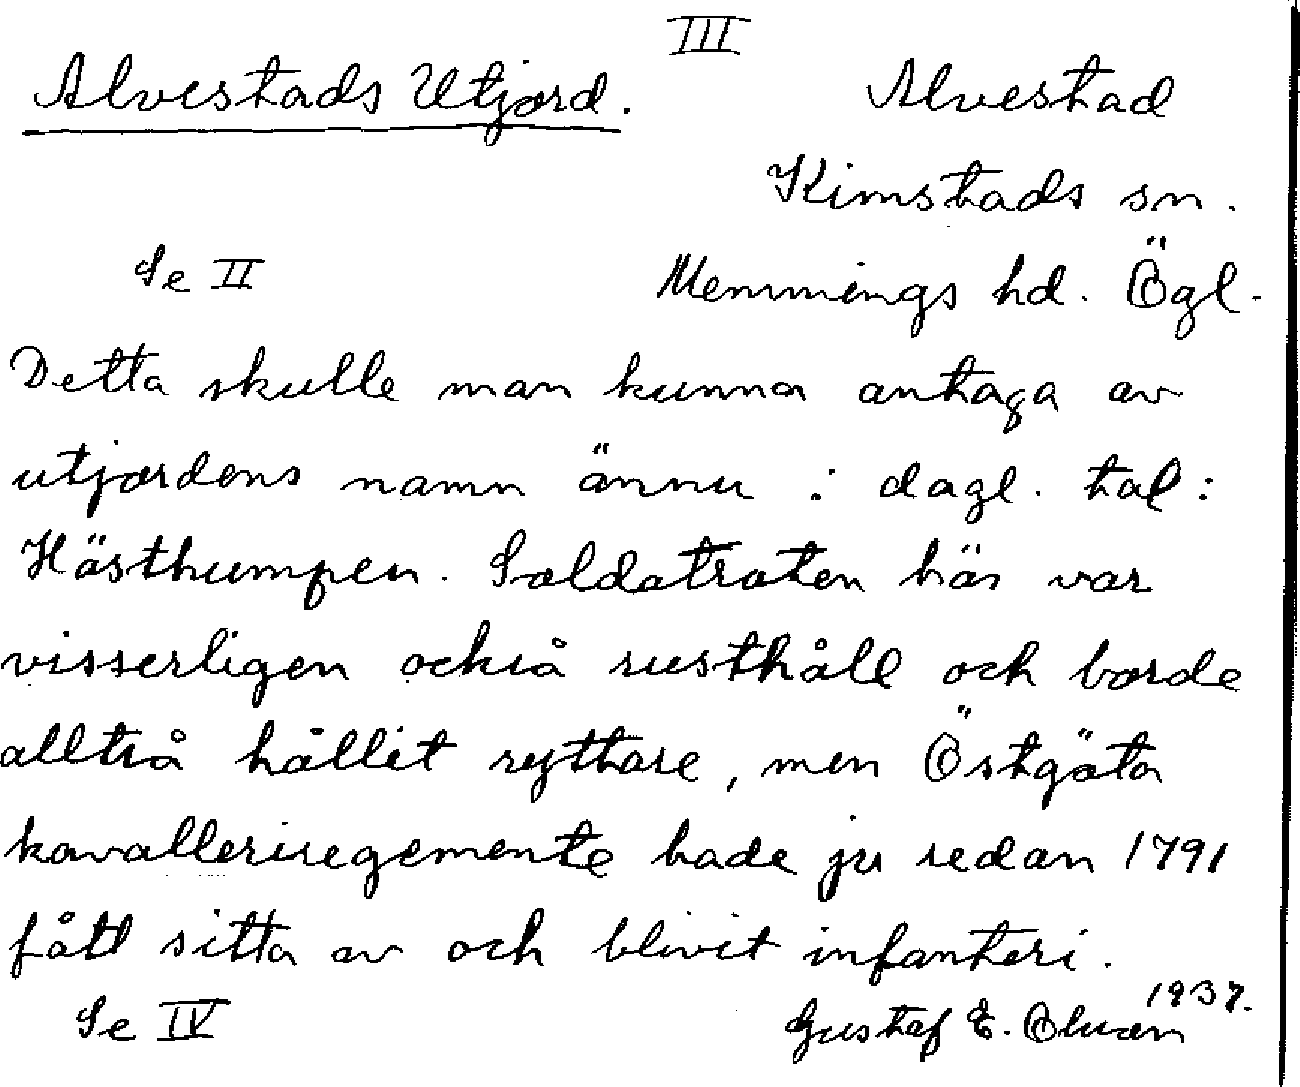 III
Alvestads Utjord.
Alvestad
Kimstads sn.
Se II
Memmings hd. Ögl.
Detta skulle man kunna antaga av
utjordens namn ännu i dagl. tal:
Hästhumpen. Soldatroten här var
visserligen också rusthåll och borde
alltså hållit ryttare, men Östgöta
kavalleriregemente hade ju redan 1791
fått sitta av och blivit infanteri.
Se IV
1937.
Gustaf E.